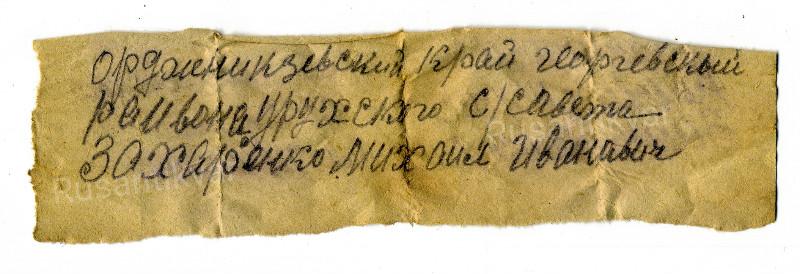 орджникизевский край георгевский
раивона урухского с/савета
Захаренко михаил иванавич